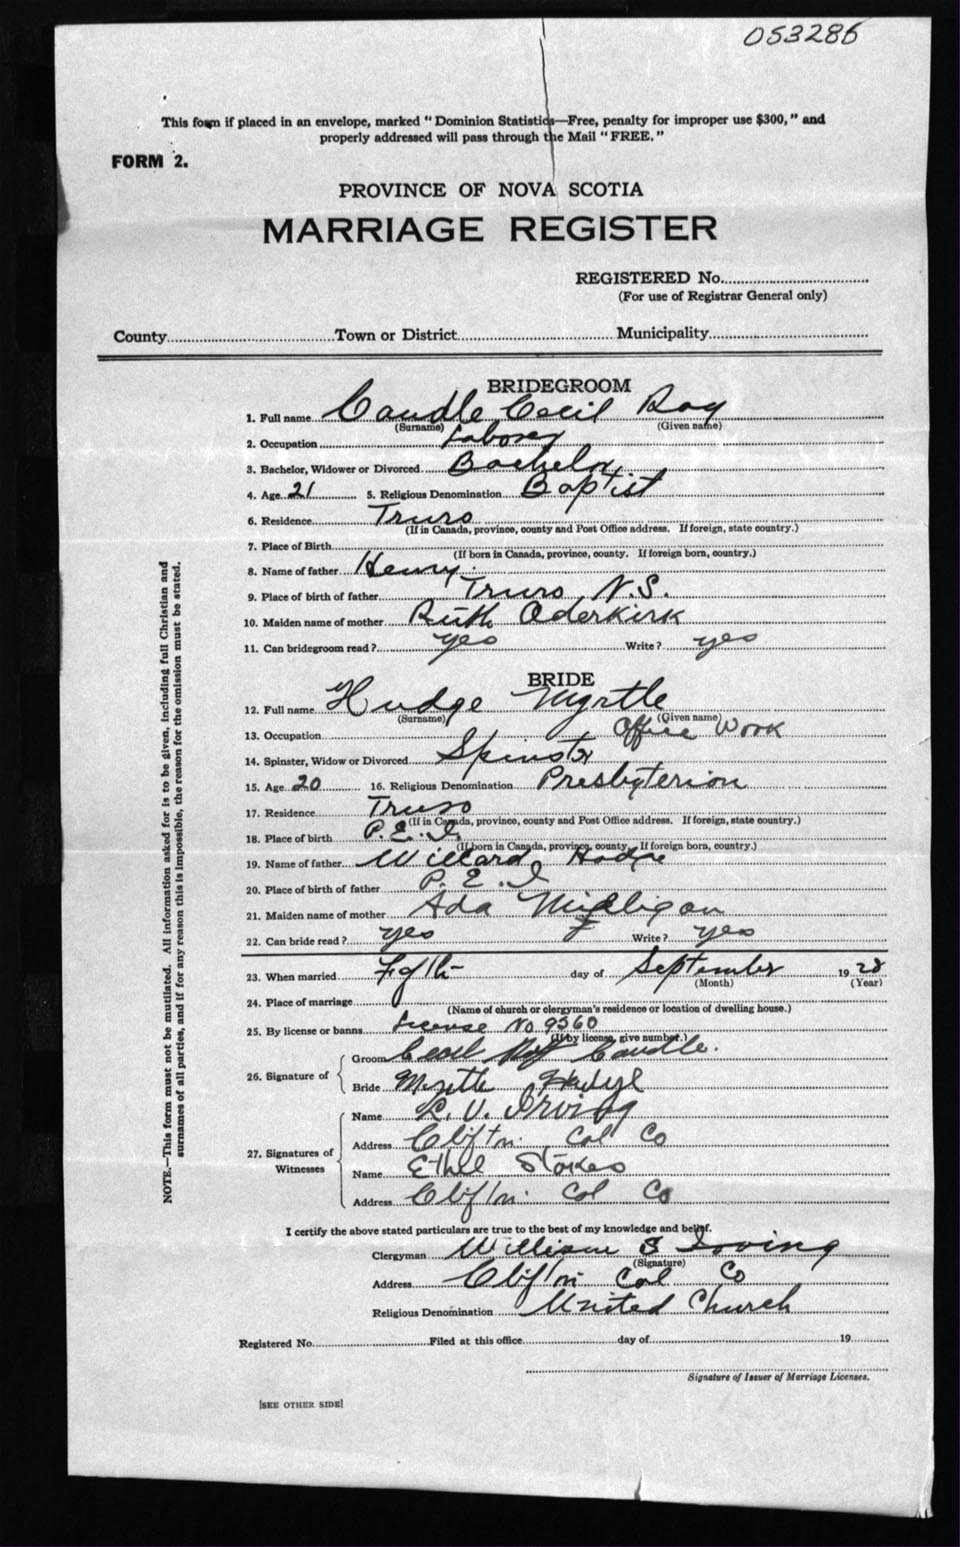 053286
This form if placed in an envelope, marked “Dominion Statistics—Free, penalty for improper use $300,” and
properly addressed will pass through the Mail “FREE.”
FORM 2.
PROVINCE OF NOVA SCOTIA
MARRIAGE REGISTER
REGISTERED No.
(For use of Registrar General only)
County Town or District Municipality
BRIDEGROOM
1. Full name Caudle Cecil Roy
(Surname) (Given name)
2. Occupation Laborer
3. Bachelor, Widower or Divorced Bachelor
4. Age 21 5. Religious Denomination Baptist
6. Residence Truro
(If in Canada, province, county and Post Office address. If foreign, state country.)
7. Place of Birth
(If born in Canada, province, county. If foreign born, country.)
8. Name of father Henry
9. Place of birth of father Truro N.S.
10. Maiden name of mother Ruth Oderkirk
11. Can bridegroom read? yes Write? yes
BRIDE
12. Full name Hudge Myrtle
(Surname) (Given name)
13. Occupation Office Work
14. Spinster, Widow or Divorced Spinster
15. Age 20 16. Religious Denomination Presbyterian
17. Residence Truro
(If in Canada, province, county and Post Office address. If foreign, state country.)
18. Place of birth P.E.I.
(If born in Canada, province, county. If foreign born, country.)
19. Name of father Willard Hodge
20. Place of birth of father P.E.I
21. Maiden name of mother Ada Milligan
22. Can bride read? yes Write? yes
23. When married day of September 1928
(Month) (Year)
24. Place of marriage
(Name of church or clergyman's residence or location of dwelling house.)
25. By license or banns License No 9360
(If by license, give number.)
26. Signature of
Groom Cecil Roy Caudle.
Bride Myrtle
27. Signatures of Witnesses
Name L. V. Irving
Address Clifton Col Co
Name Ethel Stokes
Address Clifton Col Co
I certify the above stated particulars are true to the best of my knowledge and belief.
Clergyman William S Irving
(Signature)
Address Clifton Col Co
Religious Denomination United Church
Registered No. Filed at this office day of 19
Signature of Issuer of Marriage Licenses.
[SEE OTHER SIDE]
NOTE.—This form must not be mutilated. All information asked for is to be given, including full Christian and
surnames of all parties, and if for any reason this is impossible, the reason for the omission must be stated.